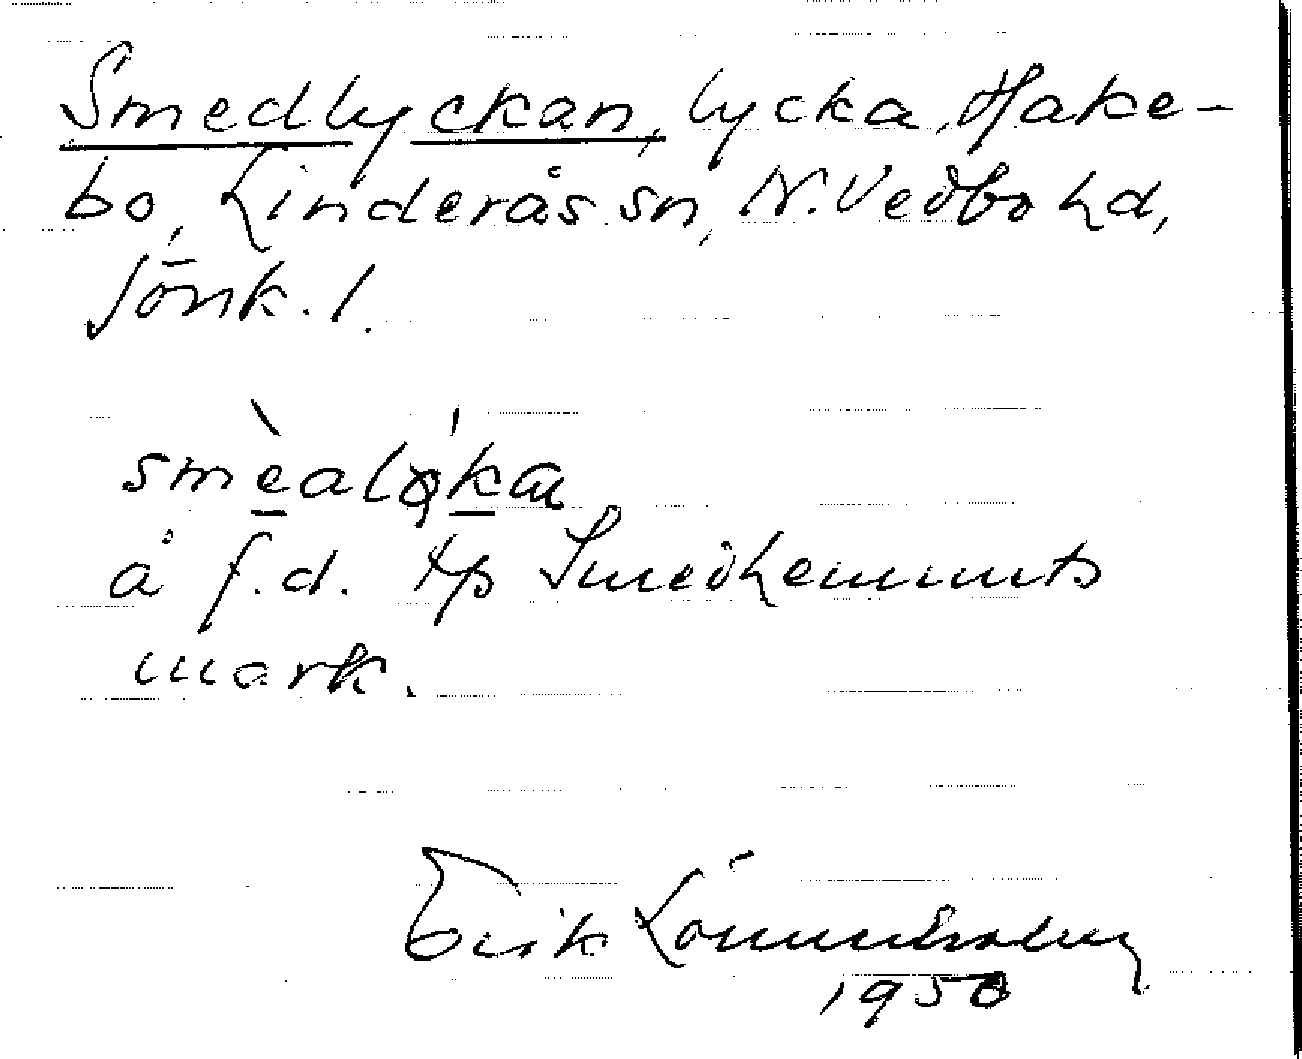 Smedlyckan, lycka, Hake-
bo, Linderås sn, N. Vedbo hd,
Jönk. l.
å f.d. tp Smedhemmets
mark.
Erik Lönnerholm
1950